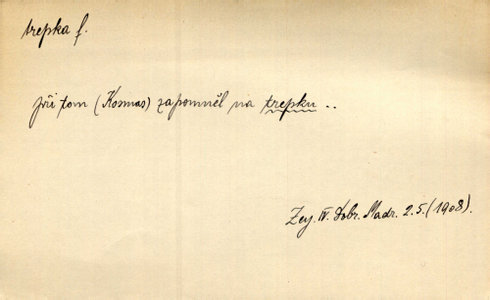 trepka f.
při tom (Kosmas) zapomněl na trepku ..
Zey. IV. Dobr. Madr. 2.5. (1908).